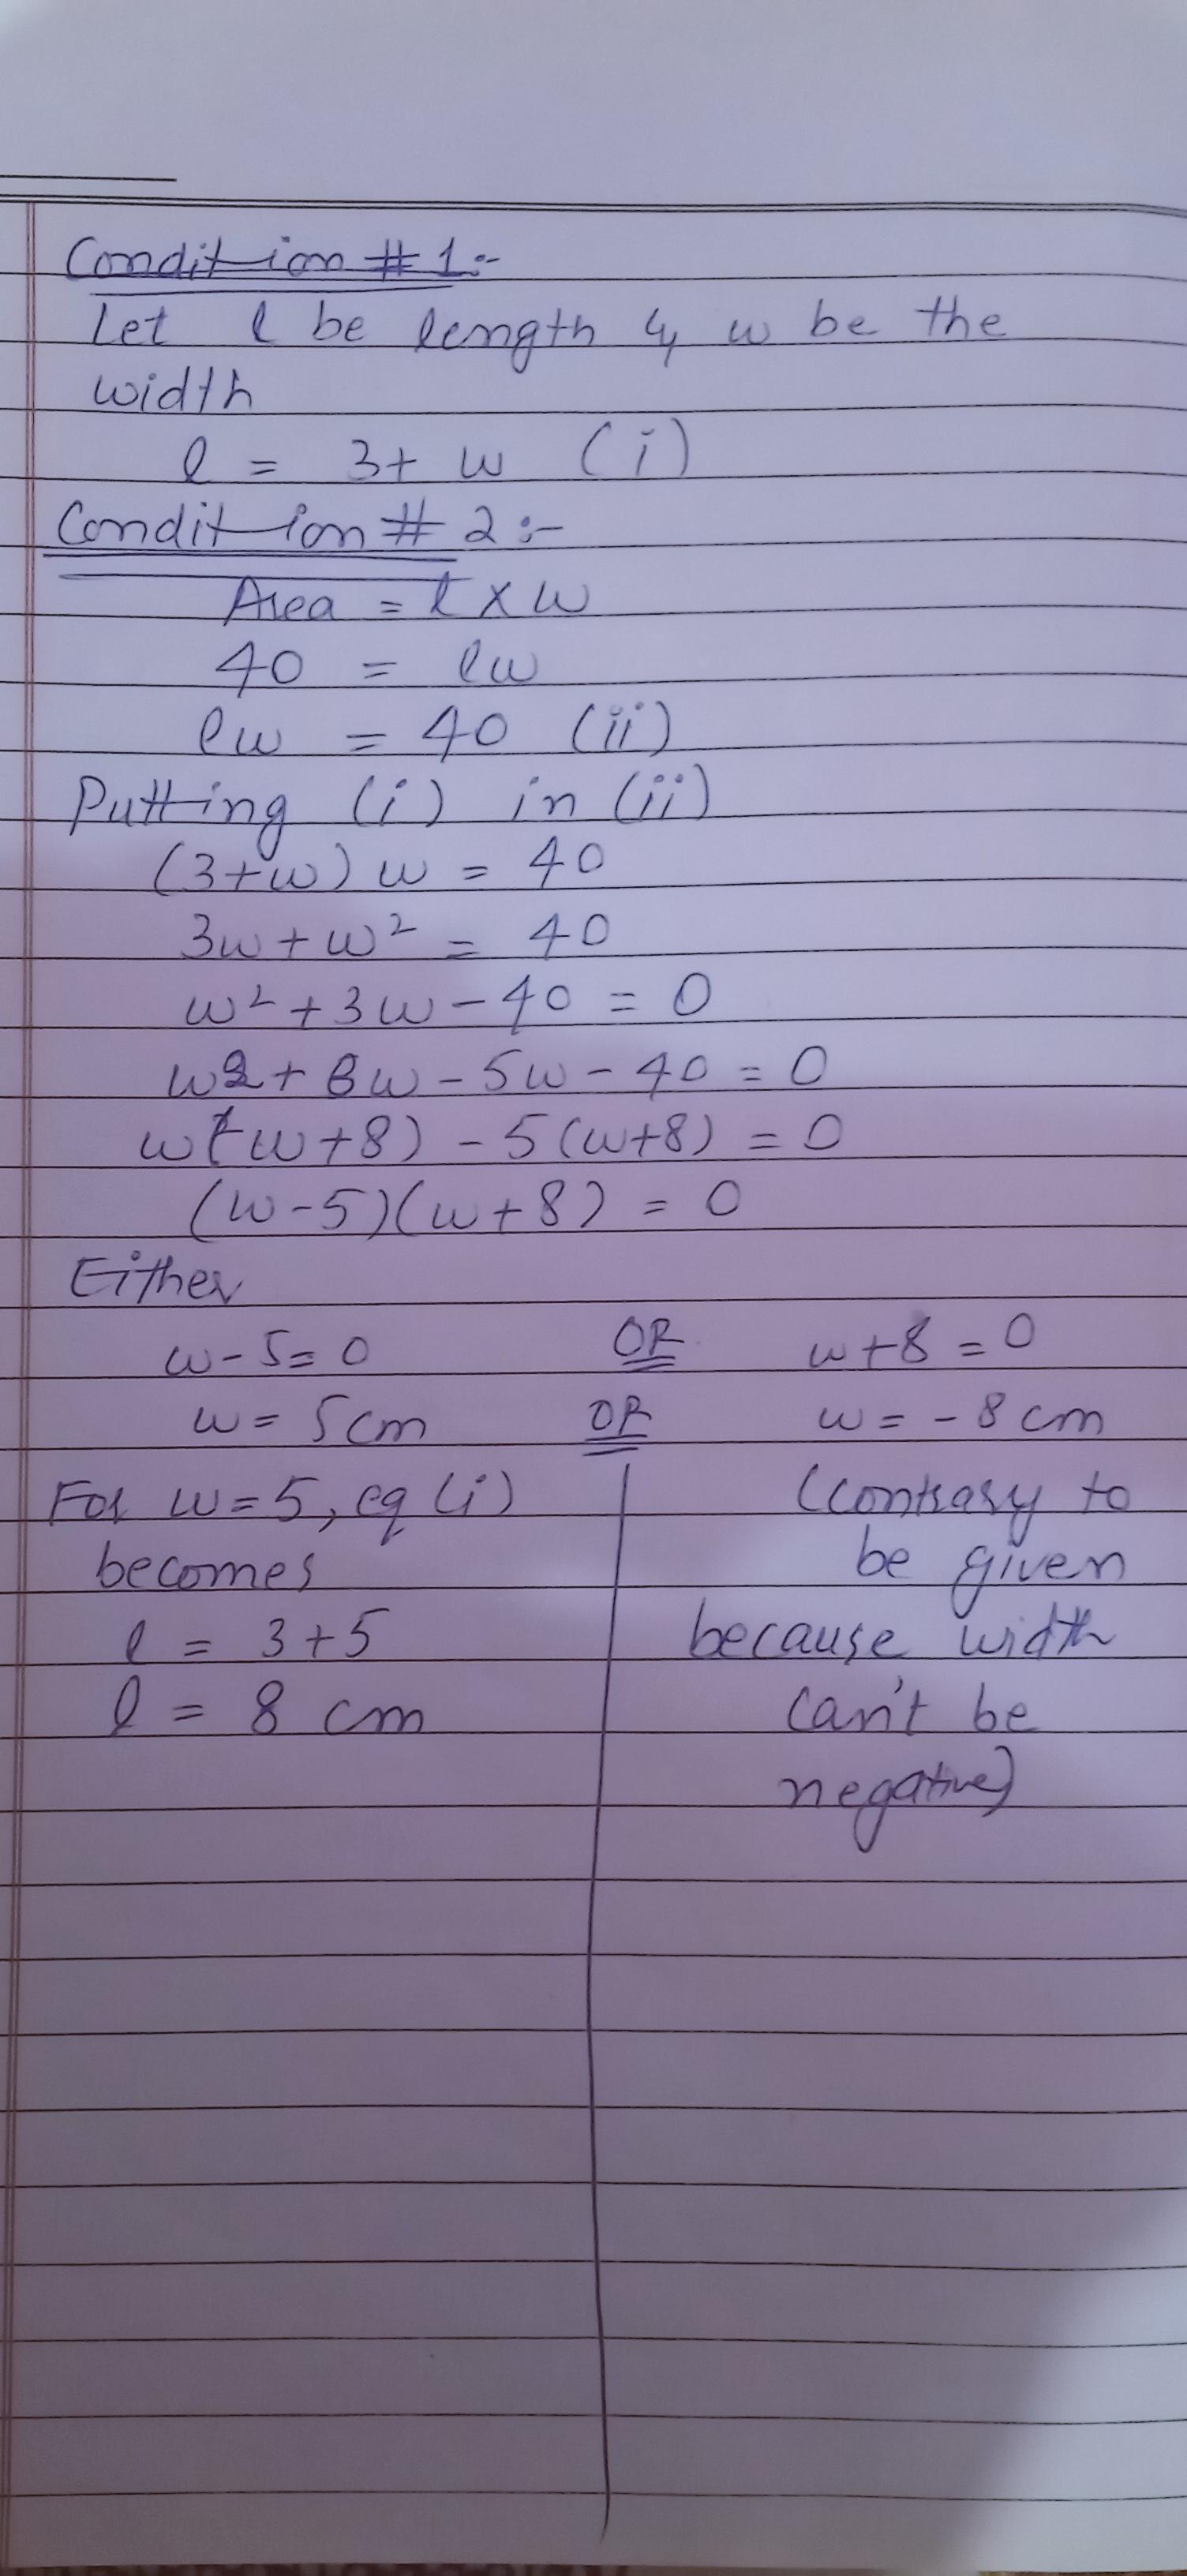 Condition # 1:-
Let l be length & w be the
width
l = 3+ w (i)
Condition # 2:-
Area = l x w
40 = lw
lw = 40 (ii)
Putting (i) in (ii)
(3+w) w = 40
3w + w² = 40
w² + 3w - 40 = 0
w2 + 8w - 5w - 40 = 0
w(w+8) - 5(w+8) = 0
(w-5)(w+8) = 0
Either
w-5=0 OR w+8=0
w=5cm OR w=-8cm
For w=5, eq (i)
becomes
l = 3+5
l = 8 cm
(contrary to
be given
because width
can't be
negative)